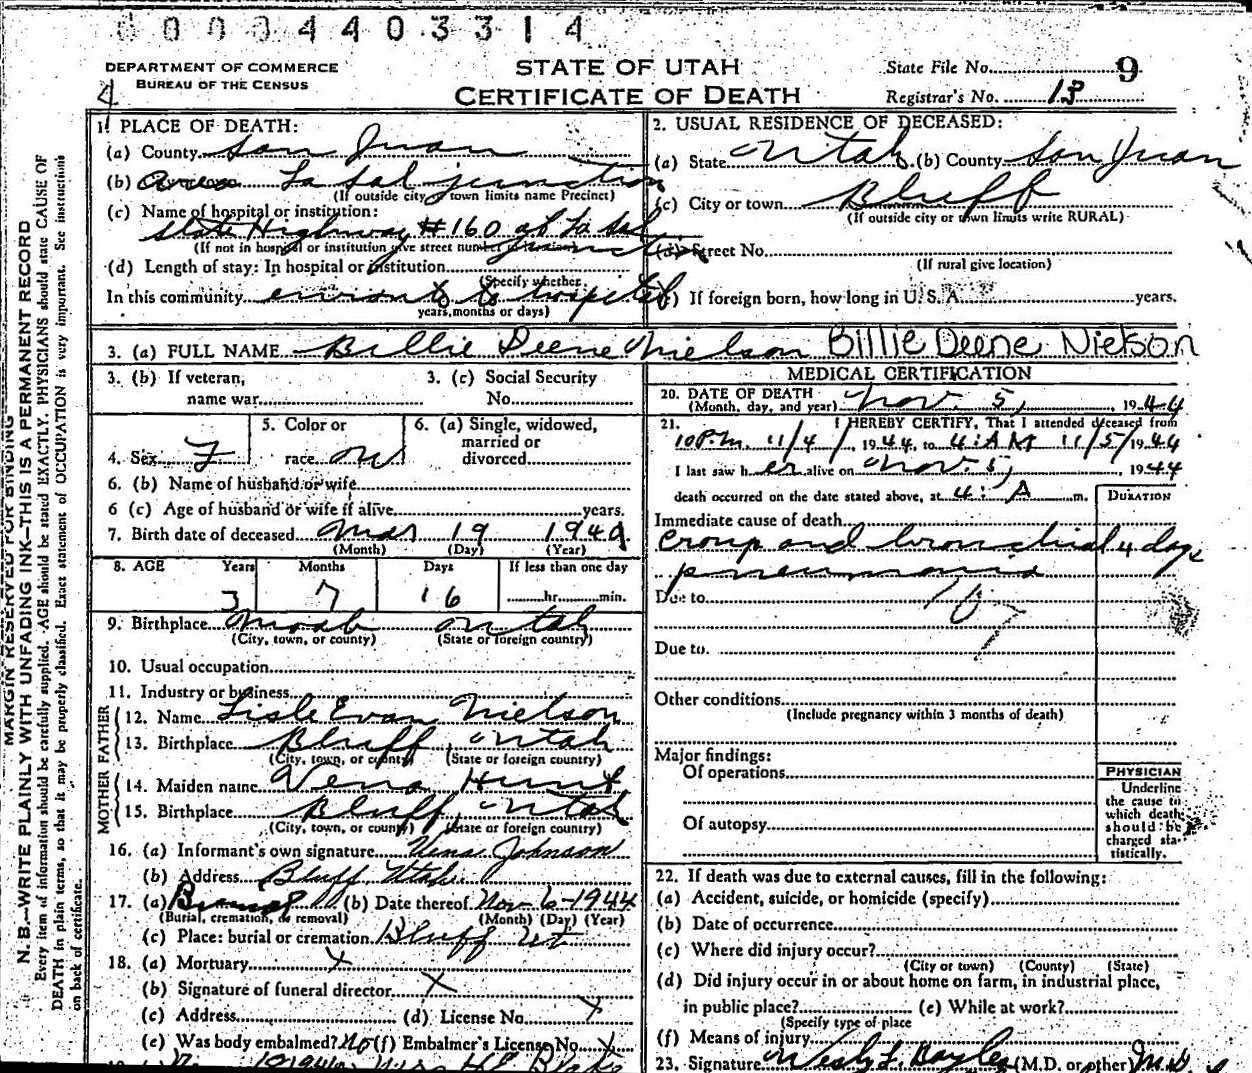 0 0 0 0 4 4 0 3 3 1 4
DEPARTMENT OF COMMERCE
BUREAU OF THE CENSUS
STATE OF UTAH
CERTIFICATE OF DEATH
State File No. 9
Registrar's No. 13
MARGIN RESERVED FOR BINDING
N. B.—WRITE PLAINLY WITH UNFADING INK—THIS IS A PERMANENT RECORD
Every item of information should be carefully supplied. AGE should be stated EXACTLY. PHYSICIANS should state CAUSE OF
DEATH in plain terms, so that it may be properly classified. Exact statement of OCCUPATION is very important. See instructions
on back of certificate.
1. PLACE OF DEATH:
(a) County San Juan
(b) La Sal junction
(If outside city or town limits name Precinct)
(c) Name of hospital or institution:
State Highway #160 at La Sal
junction
(If not in hospital or institution give street number or location)
(d) Length of stay: In hospital or institution
(Specify whether
In this community enroute to hospital
years, months or days)
2. USUAL RESIDENCE OF DECEASED:
(a) State Utah (b) County San Juan
(c) City or town Bluff
(If outside city or town limits write RURAL)
(d) Street No.
(If rural give location)
(e) If foreign born, how long in U. S. A. years.
3. (a) FULL NAME Billie Deene Nielson Billie Deene Nielson
3. (b) If veteran,
name war
3. (c) Social Security
No.
4. Sex F
5. Color or
race W
6. (a) Single, widowed,
married or
divorced
6. (b) Name of husband or wife
6 (c) Age of husband or wife if alive years.
7. Birth date of deceased Mar 19 1940
(Month) (Day) (Year)
8. AGE Years Months Days If less than one day
3 7 16 hr. min.
9. Birthplace Moab Utah
(City, town, or county) (State or foreign country)
10. Usual occupation
11. Industry or business
FATHER
12. Name Lisle Evan Nielson
13. Birthplace Bluff, Utah
(City, town, or county) (State or foreign country)
MOTHER
14. Maiden name Vena Hunt
15. Birthplace Bluff, Utah
(City, town, or county) (State or foreign country)
16. (a) Informant's own signature Vena Johnson
(b) Address Bluff Utah
17. (a) Burial (b) Date thereof Nov-6-1944
(Burial, cremation, or removal) (Month) (Day) (Year)
(c) Place: burial or cremation Bluff Ut
18. (a) Mortuary X
(b) Signature of funeral director X
(c) Address (d) License No. X
(e) Was body embalmed? No (f) Embalmer's License No. X
MEDICAL CERTIFICATION
20. DATE OF DEATH
(Month, day, and year) Nov. 5, 1944
21. I HEREBY CERTIFY, That I attended deceased from
10 P.M. 11/4/, 1944, to 4: AM 11/5/1944
I last saw her alive on Nov. 5, 1944
death occurred on the date stated above, at 4: A m.
DURATION
Immediate cause of death
croup and bronchial 4 days
pneumonia
Due to 107
Due to.
Other conditions
(Include pregnancy within 3 months of death)
Major findings:
Of operations
Of autopsy
PHYSICIAN
Underline
the cause to
which death
should be
charged sta-
tistically.
22. If death was due to external causes, fill in the following:
(a) Accident, suicide, or homicide (specify)
(b) Date of occurrence
(c) Where did injury occur?
(City or town) (County) (State)
(d) Did injury occur in or about home on farm, in industrial place,
in public place? (e) While at work?
(Specify type of place
(f) Means of injury
23. Signature (M.D. or other) M.D.